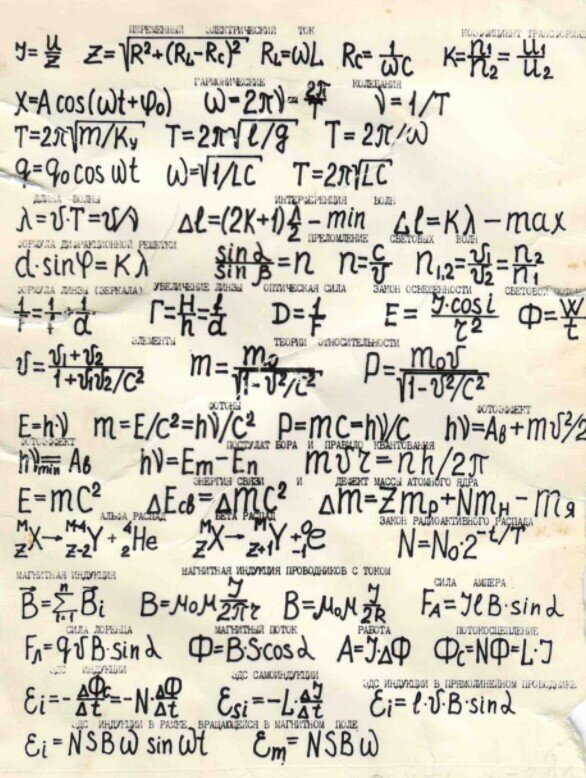 ПЕРЕМЕННЫЙ ЭЛЕКТРИЧЕСКИЙ ТОК КОЭФФИЦИЕНТ ТРАНСФОРМАЦ
J = U/Z Z = √(R² + (R_L − R_C)²) R_L = ωL R_C = 1/ωC K = n₁/n₂ = U₁/U₂
ГАРМОНИЧЕСКИЕ КОЛЕБАНИЯ
X = A cos(ωt + φ₀) ω = 2πν = 2π/T ν = 1/T
T = 2π√(m/K_y) T = 2π√(l/g) T = 2π/ω
q = q₀ cos ωt ω = √(1/LC) T = 2π√(LC)
ДЛИНА ВОЛНЫ ИНТЕРФЕРЕНЦИЯ ВОЛН
λ = υ·T = υ/ν Δl = (2K+1) λ/2 − min Δl = Kλ − max
ФОРМУЛА ДИФРАКЦИОННОЙ РЕШЕТКИ ПРЕЛОМЛЕНИЕ СВЕТОВЫХ ВОЛН
d·sin φ = Kλ sin α / sin β = n n = c/υ n₁,₂ = υ₁/υ₂ = n₂/n₁
ФОРМУЛА ЛИНЗЫ (ЗЕРКАЛА) УВЕЛИЧЕНИЕ ЛИНЗЫ ОПТИЧЕСКАЯ СИЛА ЗАКОН ОСВЕЩЕННОСТИ СВЕТОВОЙ
1/F = 1/f + 1/d Γ = H/h = f/d D = 1/F E = J·cos i / r² Φ = W/t
ЭЛЕМЕНТЫ ТЕОРИИ ОТНОСИТЕЛЬНОСТИ
υ = (υ₁ + υ₂)/(1 + υ₁υ₂/c²) m = m₀/√(1 − υ²/c²) P = m₀υ/√(1 − υ²/c²)
ФОТОНЫ ФОТОЭФФЕКТ
E = h·ν m = E/c² = hν/c² P = mc = hν/c hν = Aв + mυ²/2
ФОТОЭФФЕКТ ПОСТУЛАТ БОРА И ПРАВИЛО КВАНТОВАНИЯ
hν_min = Aв hν = E_m − E_n mυr = nh/2π
ЭНЕРГИЯ СВЯЗИ И ДЕФЕКТ МАССЫ АТОМНОГО ЯДРА
E = mC² ΔEсв = Δmc² Δm = Zm_p + Nm_н − m_я
АЛЬФА РАСПАД БЕТА РАСПАД ЗАКОН РАДИОАКТИВНОГО РАСПАДА
ᴹ_Z X → ᴹ⁻⁴_Z₋₂ Y + ⁴₂He ᴹ_Z X → ᴹ_Z₊₁ Y + ⁰₋₁e N = N₀·2^(−t/T)
МАГНИТНАЯ ИНДУКЦИЯ МАГНИТНАЯ ИНДУКЦИЯ ПРОВОДНИКОВ С ТОКОМ СИЛА АМПЕРА
B⃗ = Σⁿ_(i=1) B⃗i B = μ₀μ J/2πr B = μ₀μ J/2R F_A = JlB·sin α
СИЛА ЛОРЕНЦА МАГНИТНЫЙ ПОТОК РАБОТА ПОТОКОСЦЕПЛЕНИЕ
F_Л = qυB·sin α Φ = B·S·cos α A = J·ΔΦ Φc = NΦ = L·J
ЭДС ИНДУКЦИИ ЭДС САМОИНДУКЦИИ ЭДС ИНДУКЦИИ В ПРЯМОЛИНЕЙНОМ ПРОВОДНИКЕ
Ɛi = −ΔΦc/Δt = −N·ΔΦ/Δt Ɛsi = −L·ΔJ/Δt Ɛi = l·υ·B·sin α
ЭДС ИНДУКЦИИ В РАМКЕ, ВРАЩАЮЩЕЙСЯ В МАГНИТНОМ ПОЛЕ
Ɛi = NSBω sin ωt Ɛm = NSBω